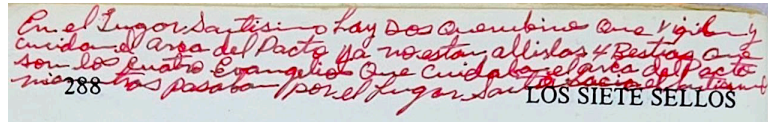 En el Lugar Santisimo hay Dos Querubines que vigilan y
cuidan el arca del Pacto ya no estan alli las 4 Bestias que
son los cuatro Evangelios Que cuidaban el arca del Pacto
mientras pasaban por el Lugar Santo hacia el Santisimo
288 LOS SIETE SELLOS